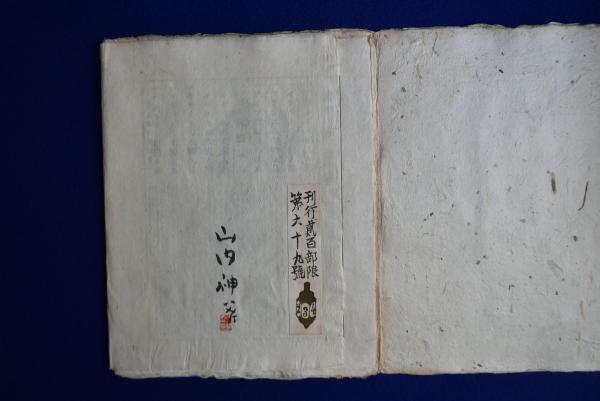 刊行貳百部限
第六十九號
山内神斧